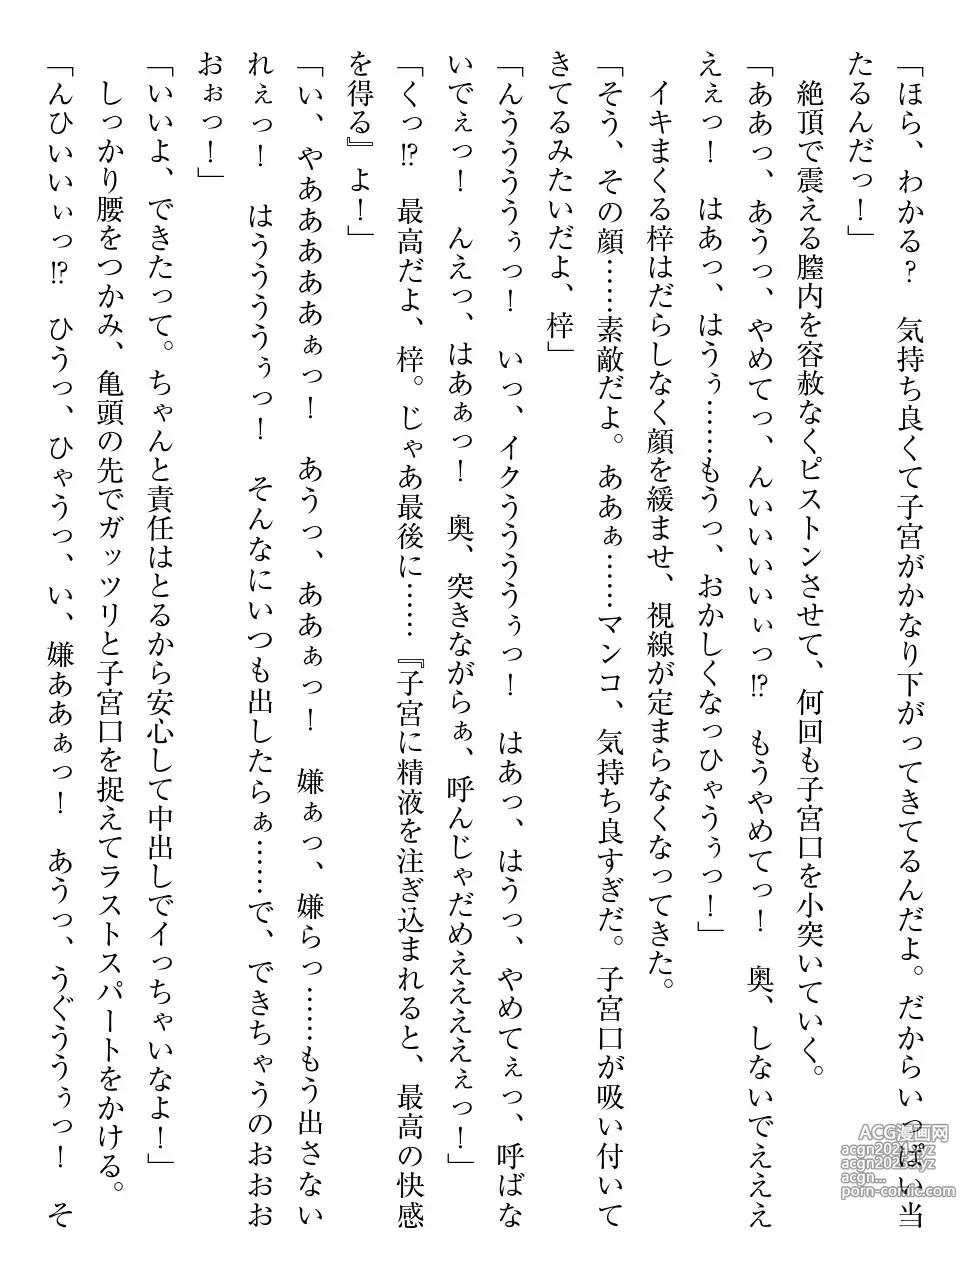 「ほら、わかる？　気持ち良くて子宮がかなり下がってきてるんだよ。だからいっぱい当
たるんだっ！」
　絶頂で震える膣内を容赦なくピストンさせて、何回も子宮口を小突いていく。
「ああっ、あうっ、やめてっ、んいいいいぃっ⁉　もうやめてっ！　奥、しないでえええ
えぇっ！　はあっ、はうぅ……もうっ、おかしくなっひゃうぅっ！」
　イキまくる梓はだらしなく顔を緩ませ、視線が定まらなくなってきた。
「そう、その顔……素敵だよ。ああぁ……マンコ、気持ち良すぎだ。子宮口が吸い付いて
きてるみたいだよ、梓」
「んうううぅっ！　いっ、イクううううぅっ！　はあっ、はうっ、やめてぇっ、呼ばな
いでぇっ！　んえっ、はあぁっ！　奥、突きながらぁ、呼んじゃだめええええぇっ！」
「くっ⁉　最高だよ、梓。じゃあ最後に……　『子宮に精液を注ぎ込まれると、最高の快感
を得る』よ！」
「い、やあああああぁっ！　あうっ、ああぁっ！　嫌ぁっ、嫌らっ……もう出さない
れぇっ！　はうううぅっ！　そんなにいつも出したらぁ……で、できちゃうのおおお
おぉっ！」
「いいよ、できたって。ちゃんと責任はとるから安心して中出しでイっちゃいなよ！」
　しっかり腰をつかみ、亀頭の先でガッツリと子宮口を捉えてラストスパートをかける。
「んひいいぃっ⁉　ひうっ、ひゃうっ、い、嫌ああぁっ！　あうっ、うぐううぅっ！　そ
ACG漫画网
acgn2020.xyz
acgn2021.xyz
acgn...
porn-comic.com